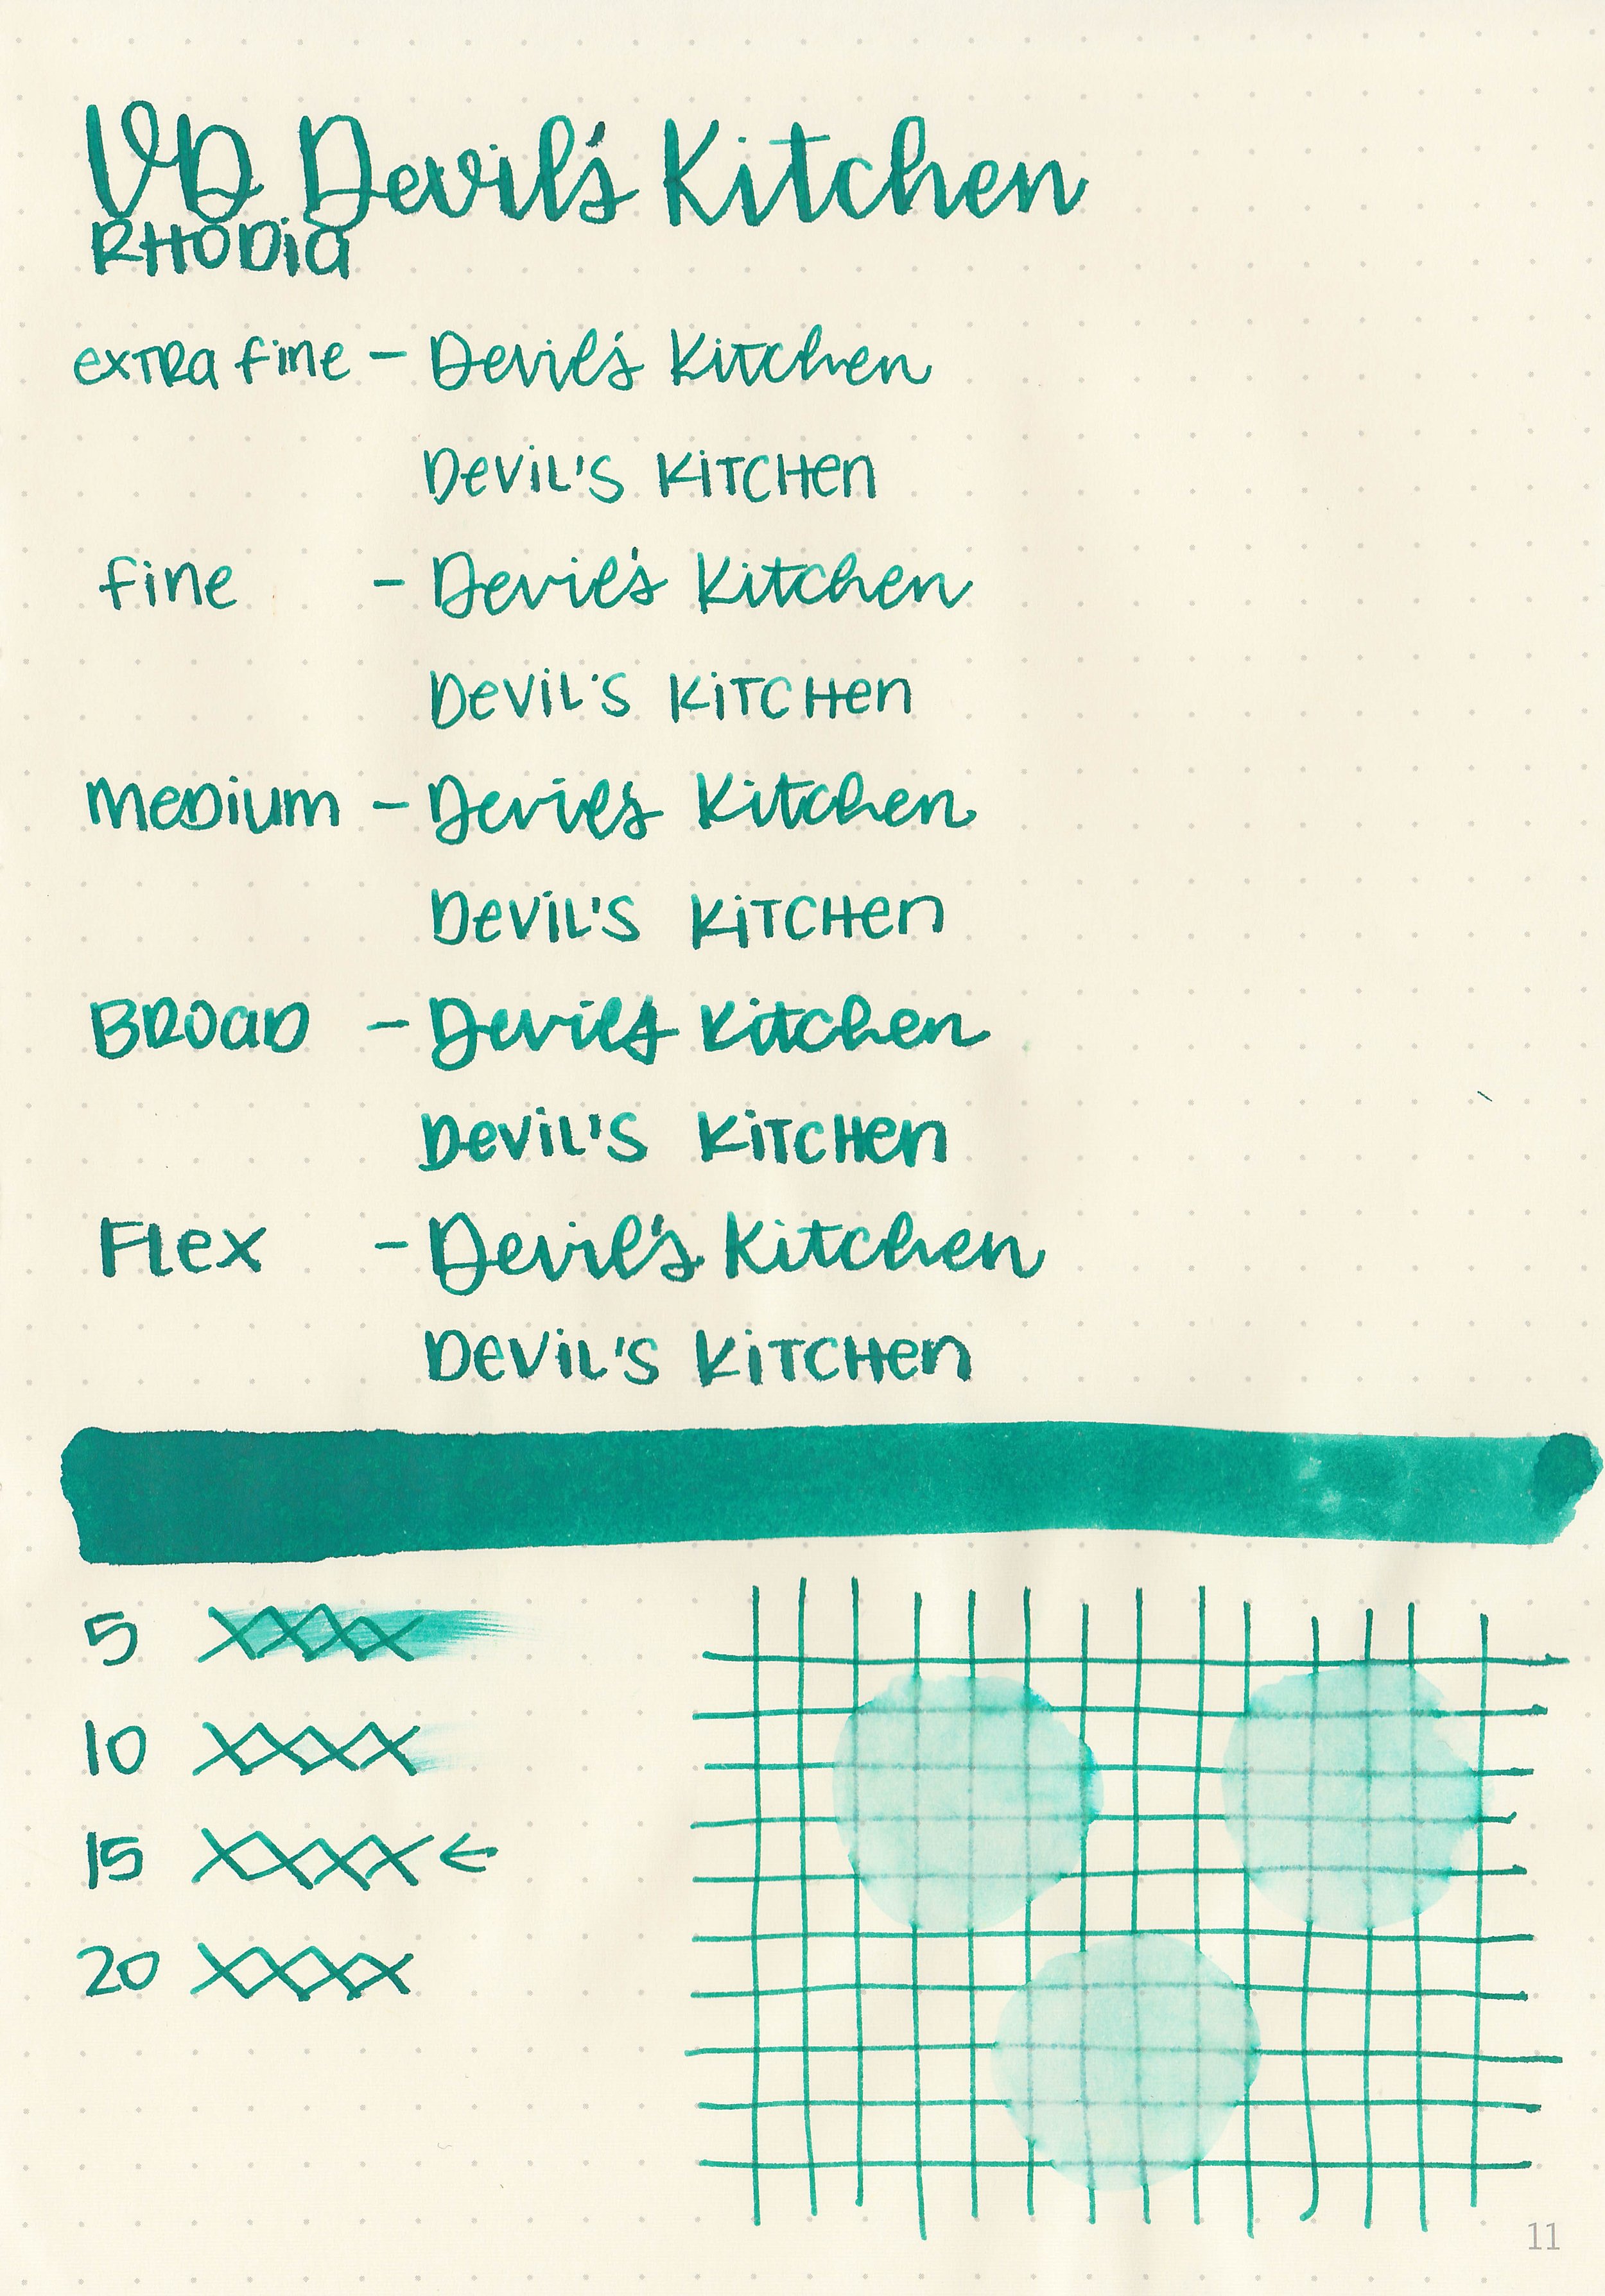 VD Devil's Kitchen
RHODia
exTRa fine - Devil's Kitchen
DeViL'S KiTCHen
fine - Devil's Kitchen
DeViL'S KiTCHen
MeDium - Devil's Kitchen
DeViL'S KiTCHen
BROaD - Devil's Kitchen
DeViL'S KiTCHen
FLex - Devil's Kitchen
DeViL'S KiTCHen
5 XXXX
10 XXXX
15 XXXX ←
20 XXXX
11